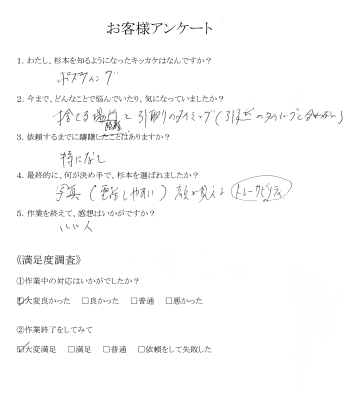 お客様アンケート
1. わたし、杉本を知るようになったキッカケはなんですか？
ポスティング
2. 今まで、どんなことで悩んでいたり、気になっていましたか？
捨てる場所と引取りのタイミング(引越のタイミングと合わない)
3. 依頼するまでに躊躇したことはありますか？
特になし
4. 最終的に、何が決め手で、杉本を選ばれましたか？
写真 (電話しやすい) 顔が見える
5. 作業を終えて、感想はいかがですか？
いい人
《満足度調査》
①作業中の対応はいかがでしたか？
☑大変良かった □良かった □普通 □悪かった
②作業終了をしてみて
☑大変満足 □満足 □普通 □依頼をして失敗した